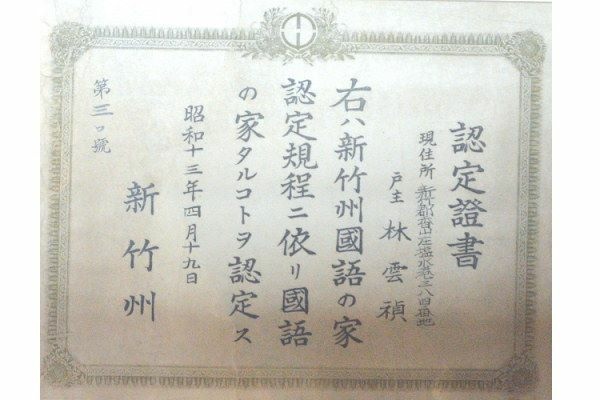 認定證書
現住所 新竹郡香山庄塩水港三八四番地
戸主 林雲禎
右ハ新竹州國語の家
認定規程ニ依リ國語
の家タルコトヲ認定ス
昭和十三年四月十九日
新竹州
第三一號